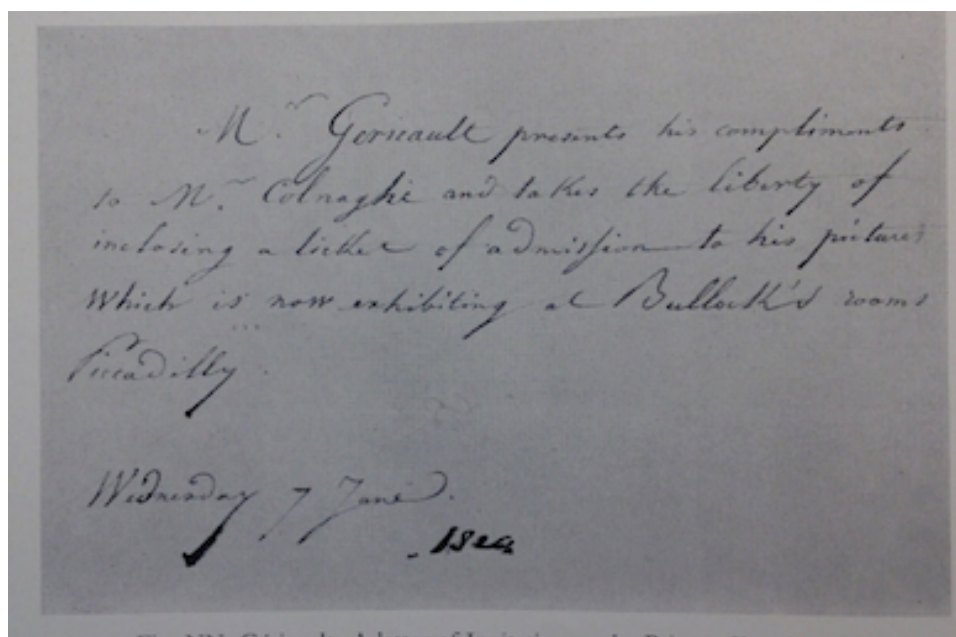 Mr. Gericault presents his compliments
to Mr. Colnaghi and takes the liberty of
inclosing a ticket of admission to his picture
which is now exhibiting at Bullock's rooms
Piccadilly.
Wednesday 7 June.